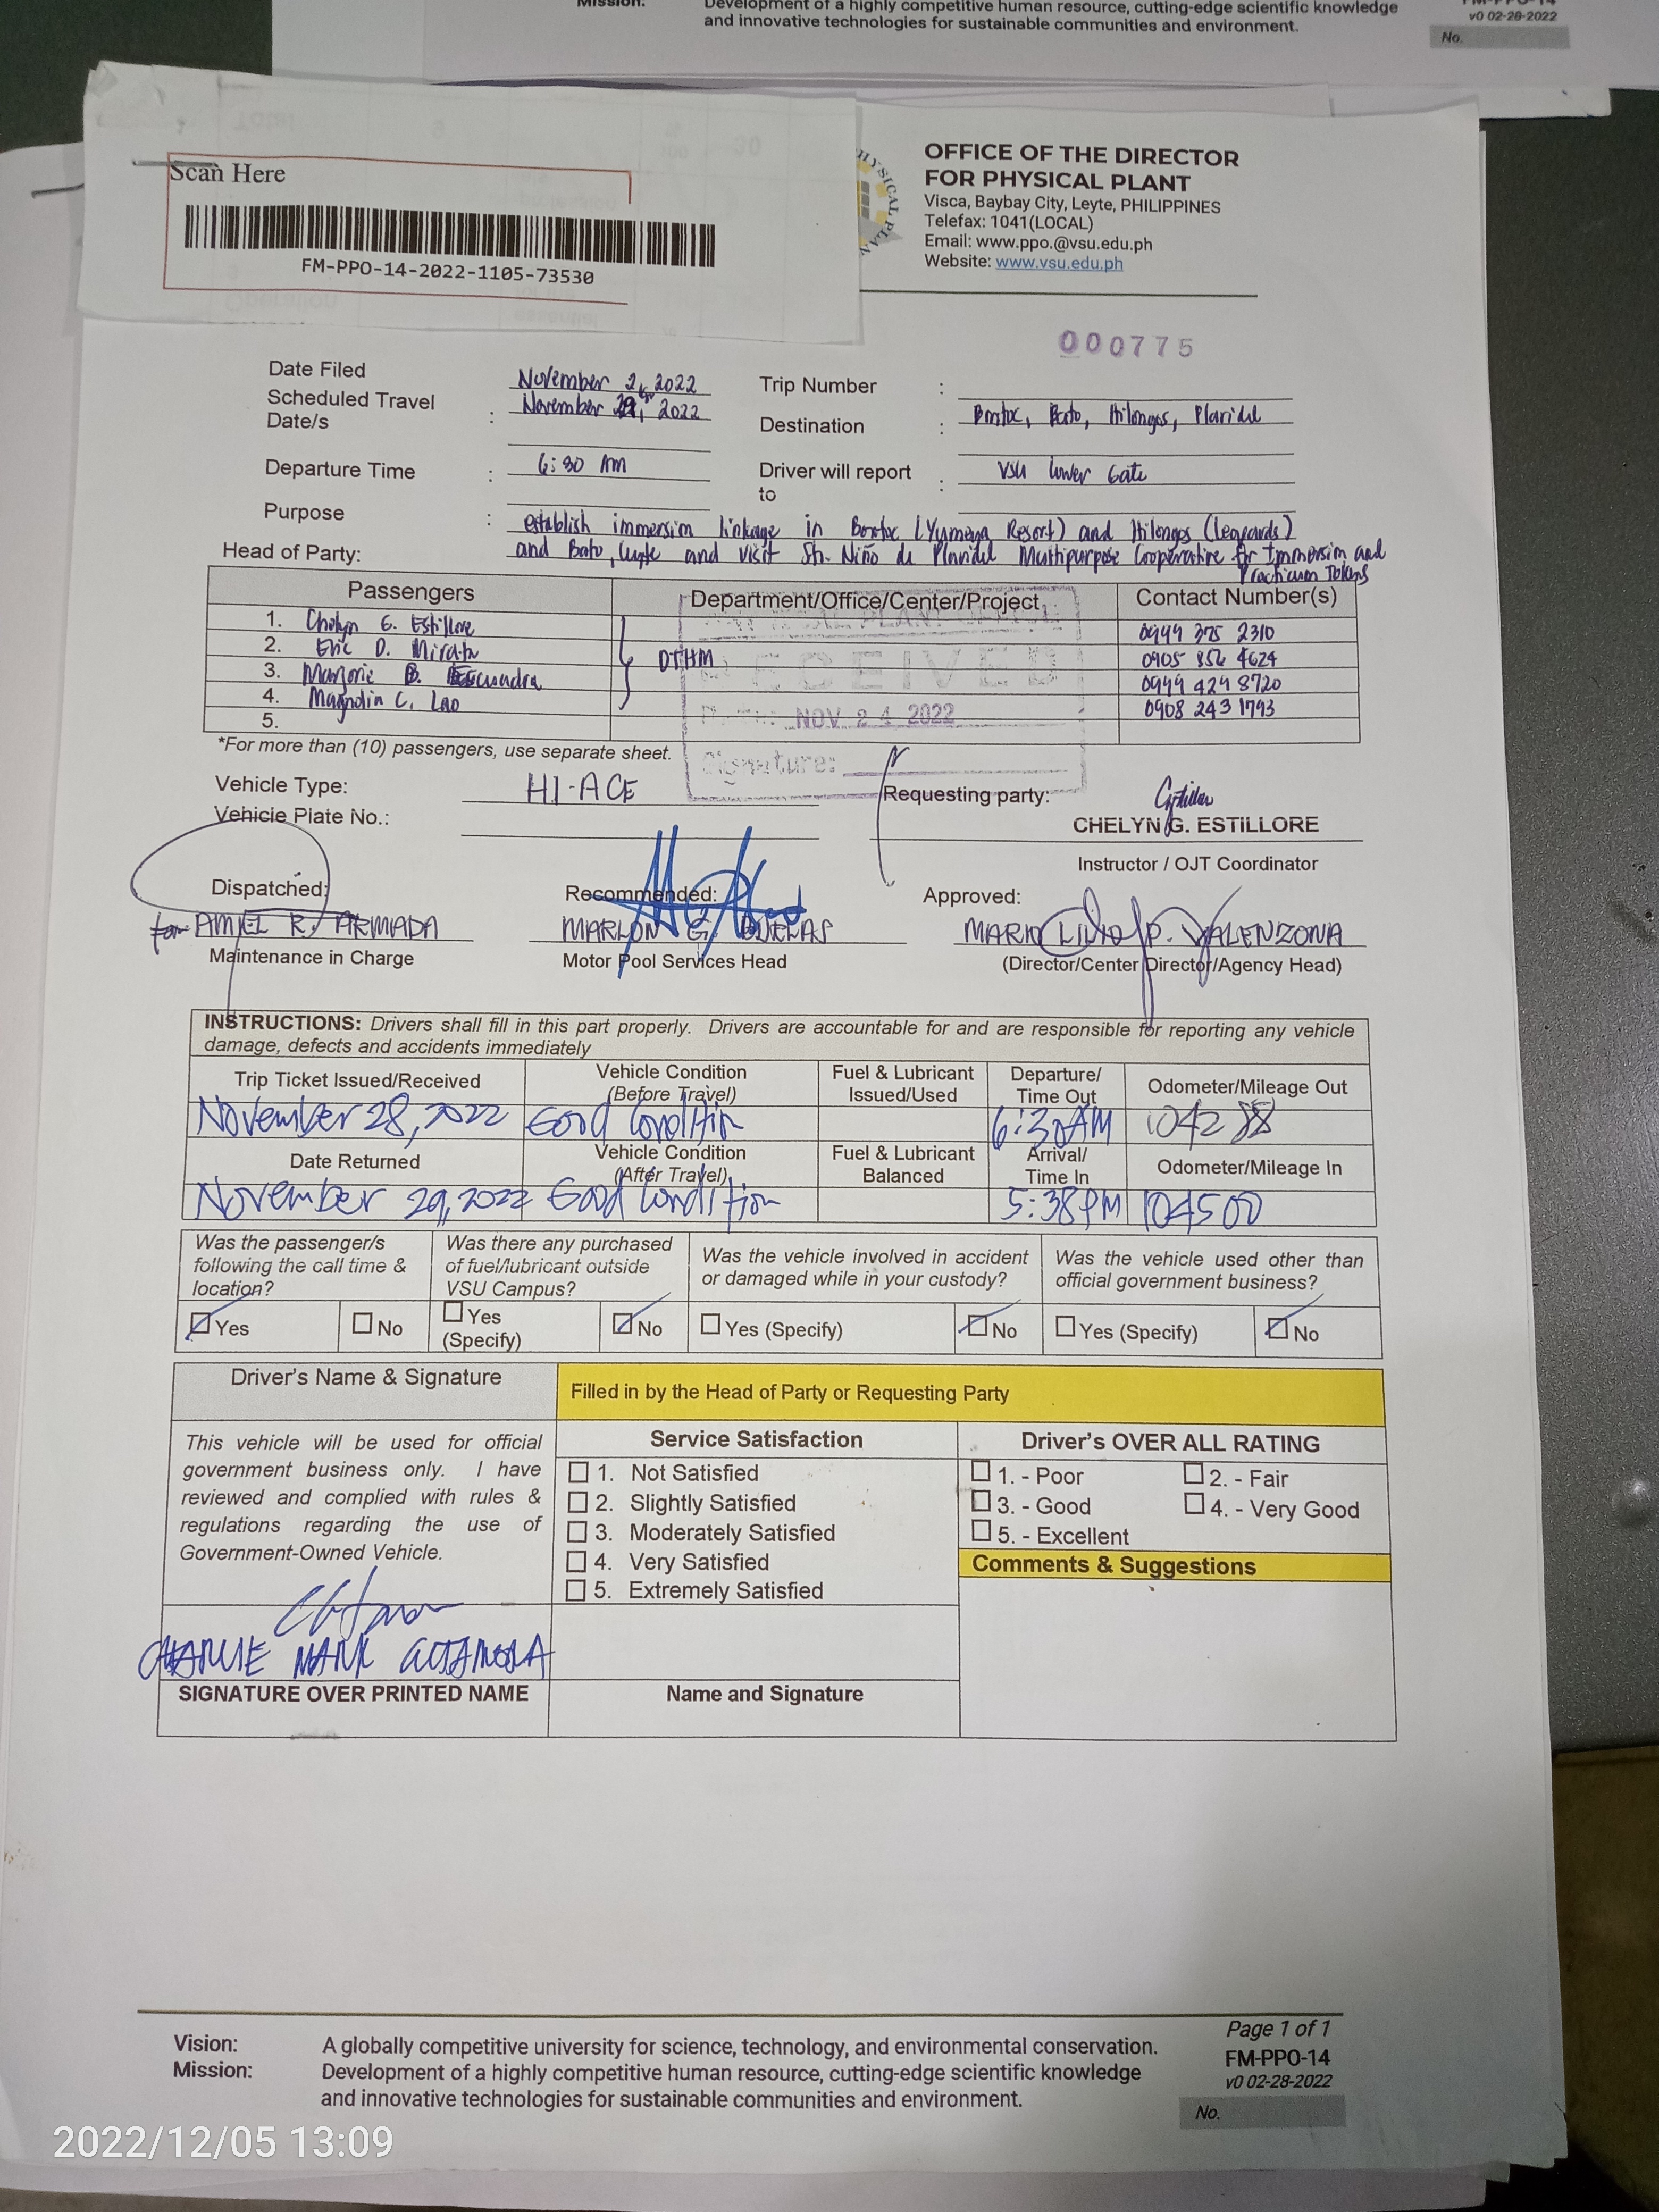 Mission: Development of a highly competitive human resource, cutting-edge scientific knowledge
and innovative technologies for sustainable communities and environment.
v0 02-28-2022
No.
Scan Here
FM-PPO-14-2022-1105-73530
OFFICE OF THE DIRECTOR
FOR PHYSICAL PLANT
Visca, Baybay City, Leyte, PHILIPPINES
Telefax: 1041(LOCAL)
Email: www.ppo.@vsu.edu.ph
Website: www.vsu.edu.ph
000775
Date Filed November 2, 2022
Trip Number :
Scheduled Travel Date/s : November 29, 2022
Destination : Bontoc, Bato, Hilongos, Plaridel
Departure Time : 6:30 AM
Driver will report to : VSU lower Gate
Purpose : establish immersion linkage in Bontoc (Yumena Resort) and Hilongos (Leopards)
Head of Party: and Bato, Leyte and visit Sto. Niño de Plaridel Multipurpose Cooperative for Immersion and
Practicum Tokens
Passengers Department/Office/Center/Project Contact Number(s)
1. Chelyn G. Estillore 0949 375 2310
2. Eric D. DTHM 0905 856 4624
3. Marjorie B. Escuadra 0949 424 8720
4. Magnolia C. Lao 0908 243 1793
5.
RECEIVED
NOV 24 2022
Signature:
*For more than (10) passengers, use separate sheet.
Vehicle Type: HI-ACE
Requesting party:
Vehicle Plate No.:
CHELYN G. ESTILLORE
Instructor / OJT Coordinator
Dispatched: Recommended: Approved:
for AMIEL R. ARMADA MARLON G. BURLAS MARIO LILIO P. VALENZONA
Maintenance in Charge Motor Pool Services Head (Director/Center Director/Agency Head)
INSTRUCTIONS: Drivers shall fill in this part properly. Drivers are accountable for and are responsible for reporting any vehicle
damage, defects and accidents immediately
Trip Ticket Issued/Received Vehicle Condition (Before Travel) Fuel & Lubricant Issued/Used Departure/ Time Out Odometer/Mileage Out
November 28, 2022 Good Condition 6:30AM 104288
Date Returned Vehicle Condition (After Travel) Fuel & Lubricant Balanced Arrival/ Time In Odometer/Mileage In
November 29, 2022 Good Condition 5:38PM 104500
Was the passenger/s following the call time & location? Was there any purchased of fuel/lubricant outside VSU Campus? Was the vehicle involved in accident or damaged while in your custody? Was the vehicle used other than official government business?
Yes No Yes (Specify) No Yes (Specify) No Yes (Specify) No
Driver's Name & Signature
Filled in by the Head of Party or Requesting Party
This vehicle will be used for official
government business only. I have
reviewed and complied with rules &
regulations regarding the use of
Government-Owned Vehicle.
CHARLIE MARK
SIGNATURE OVER PRINTED NAME
Service Satisfaction
1. Not Satisfied
2. Slightly Satisfied
3. Moderately Satisfied
4. Very Satisfied
5. Extremely Satisfied
Name and Signature
Driver's OVER ALL RATING
1. - Poor 2. - Fair
3. - Good 4. - Very Good
5. - Excellent
Comments & Suggestions
Vision: A globally competitive university for science, technology, and environmental conservation.
Mission: Development of a highly competitive human resource, cutting-edge scientific knowledge
and innovative technologies for sustainable communities and environment.
Page 1 of 1
FM-PPO-14
v0 02-28-2022
No.
2022/12/05 13:09